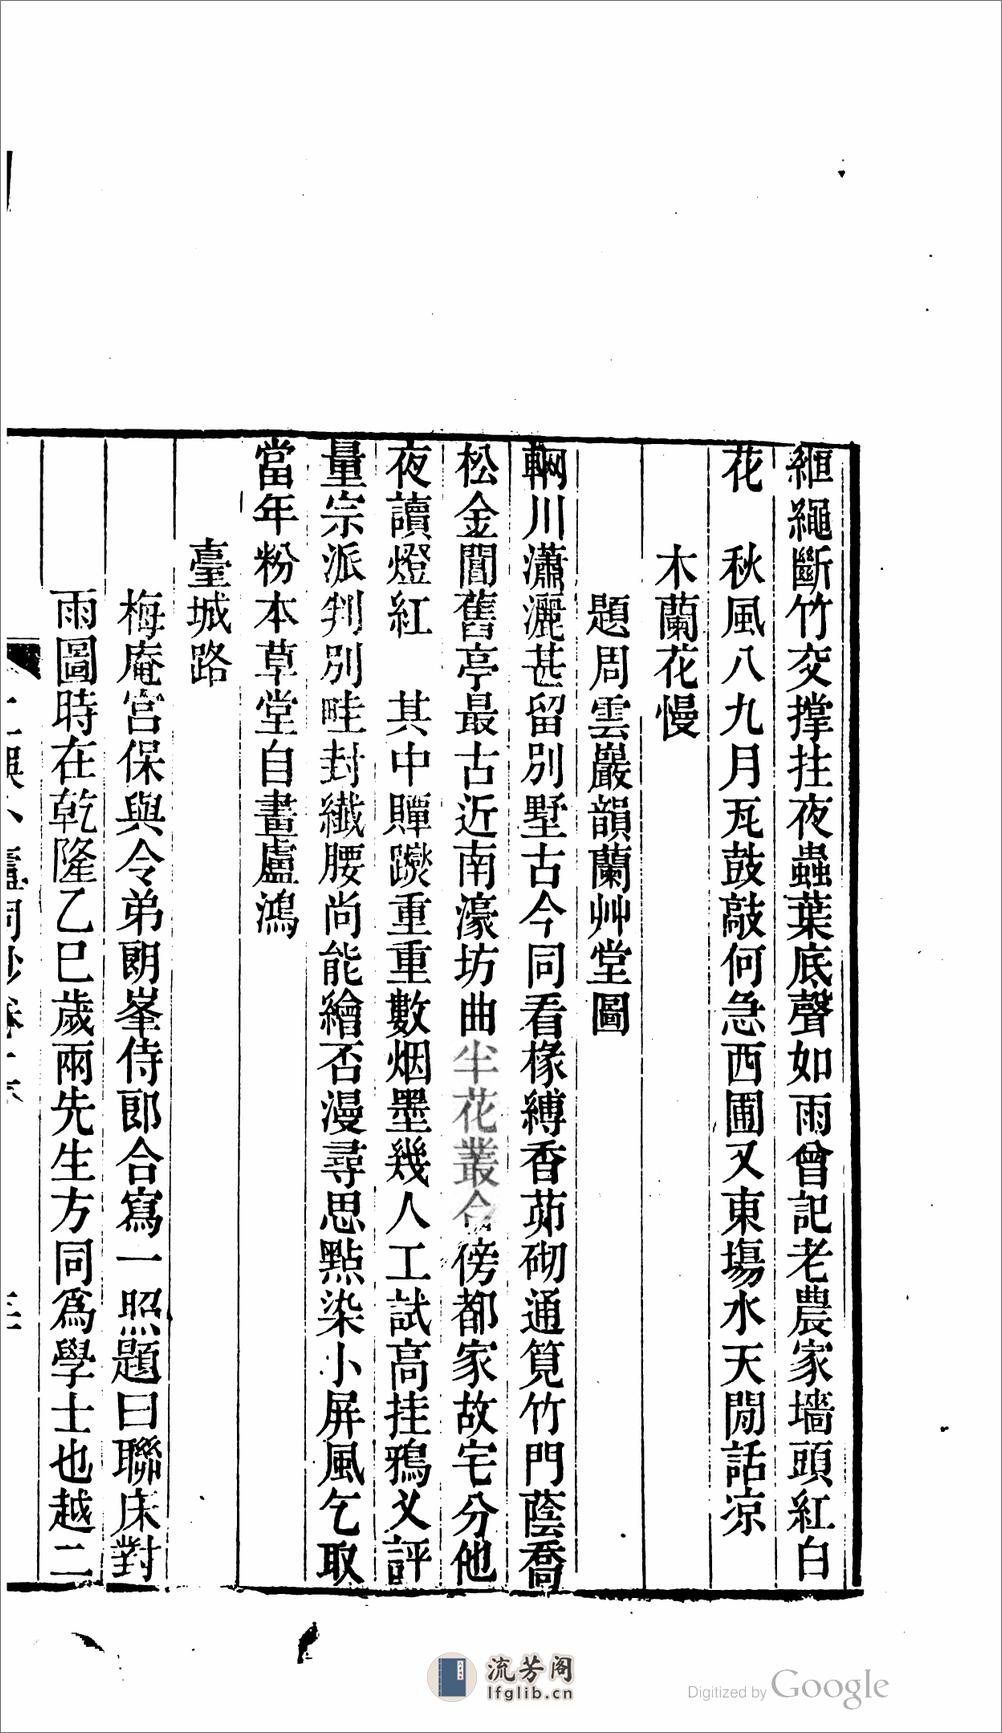 縆繩斷竹交撐拄夜蟲葉底聲如雨曾記老農家墻頭紅白
花　秋風八九月瓦鼓敲何急西圃又東塲水天閒話凉
木蘭花慢
題周雲巖韻蘭艸堂圖
輞川瀟灑甚留別墅古今同看椽縛香茆砌通筧竹門蔭喬
松金閶舊亭最古近南濠坊曲半花叢合傍都家故宅分他
夜讀燈紅　其中贉躞重重數烟墨幾人工試高挂鴉叉評
量宗派判別畦封纖腰尚能繪否漫尋思點染小屏風乞取
當年粉本草堂自畫盧鴻
臺城路
梅庵宮保與令弟朗峯侍郎合寫一照題曰聯床對
雨圖時在乾隆乙巳歲兩先生方同爲學士也越二
流芳阁
lfglib.cn
Digitized by Google